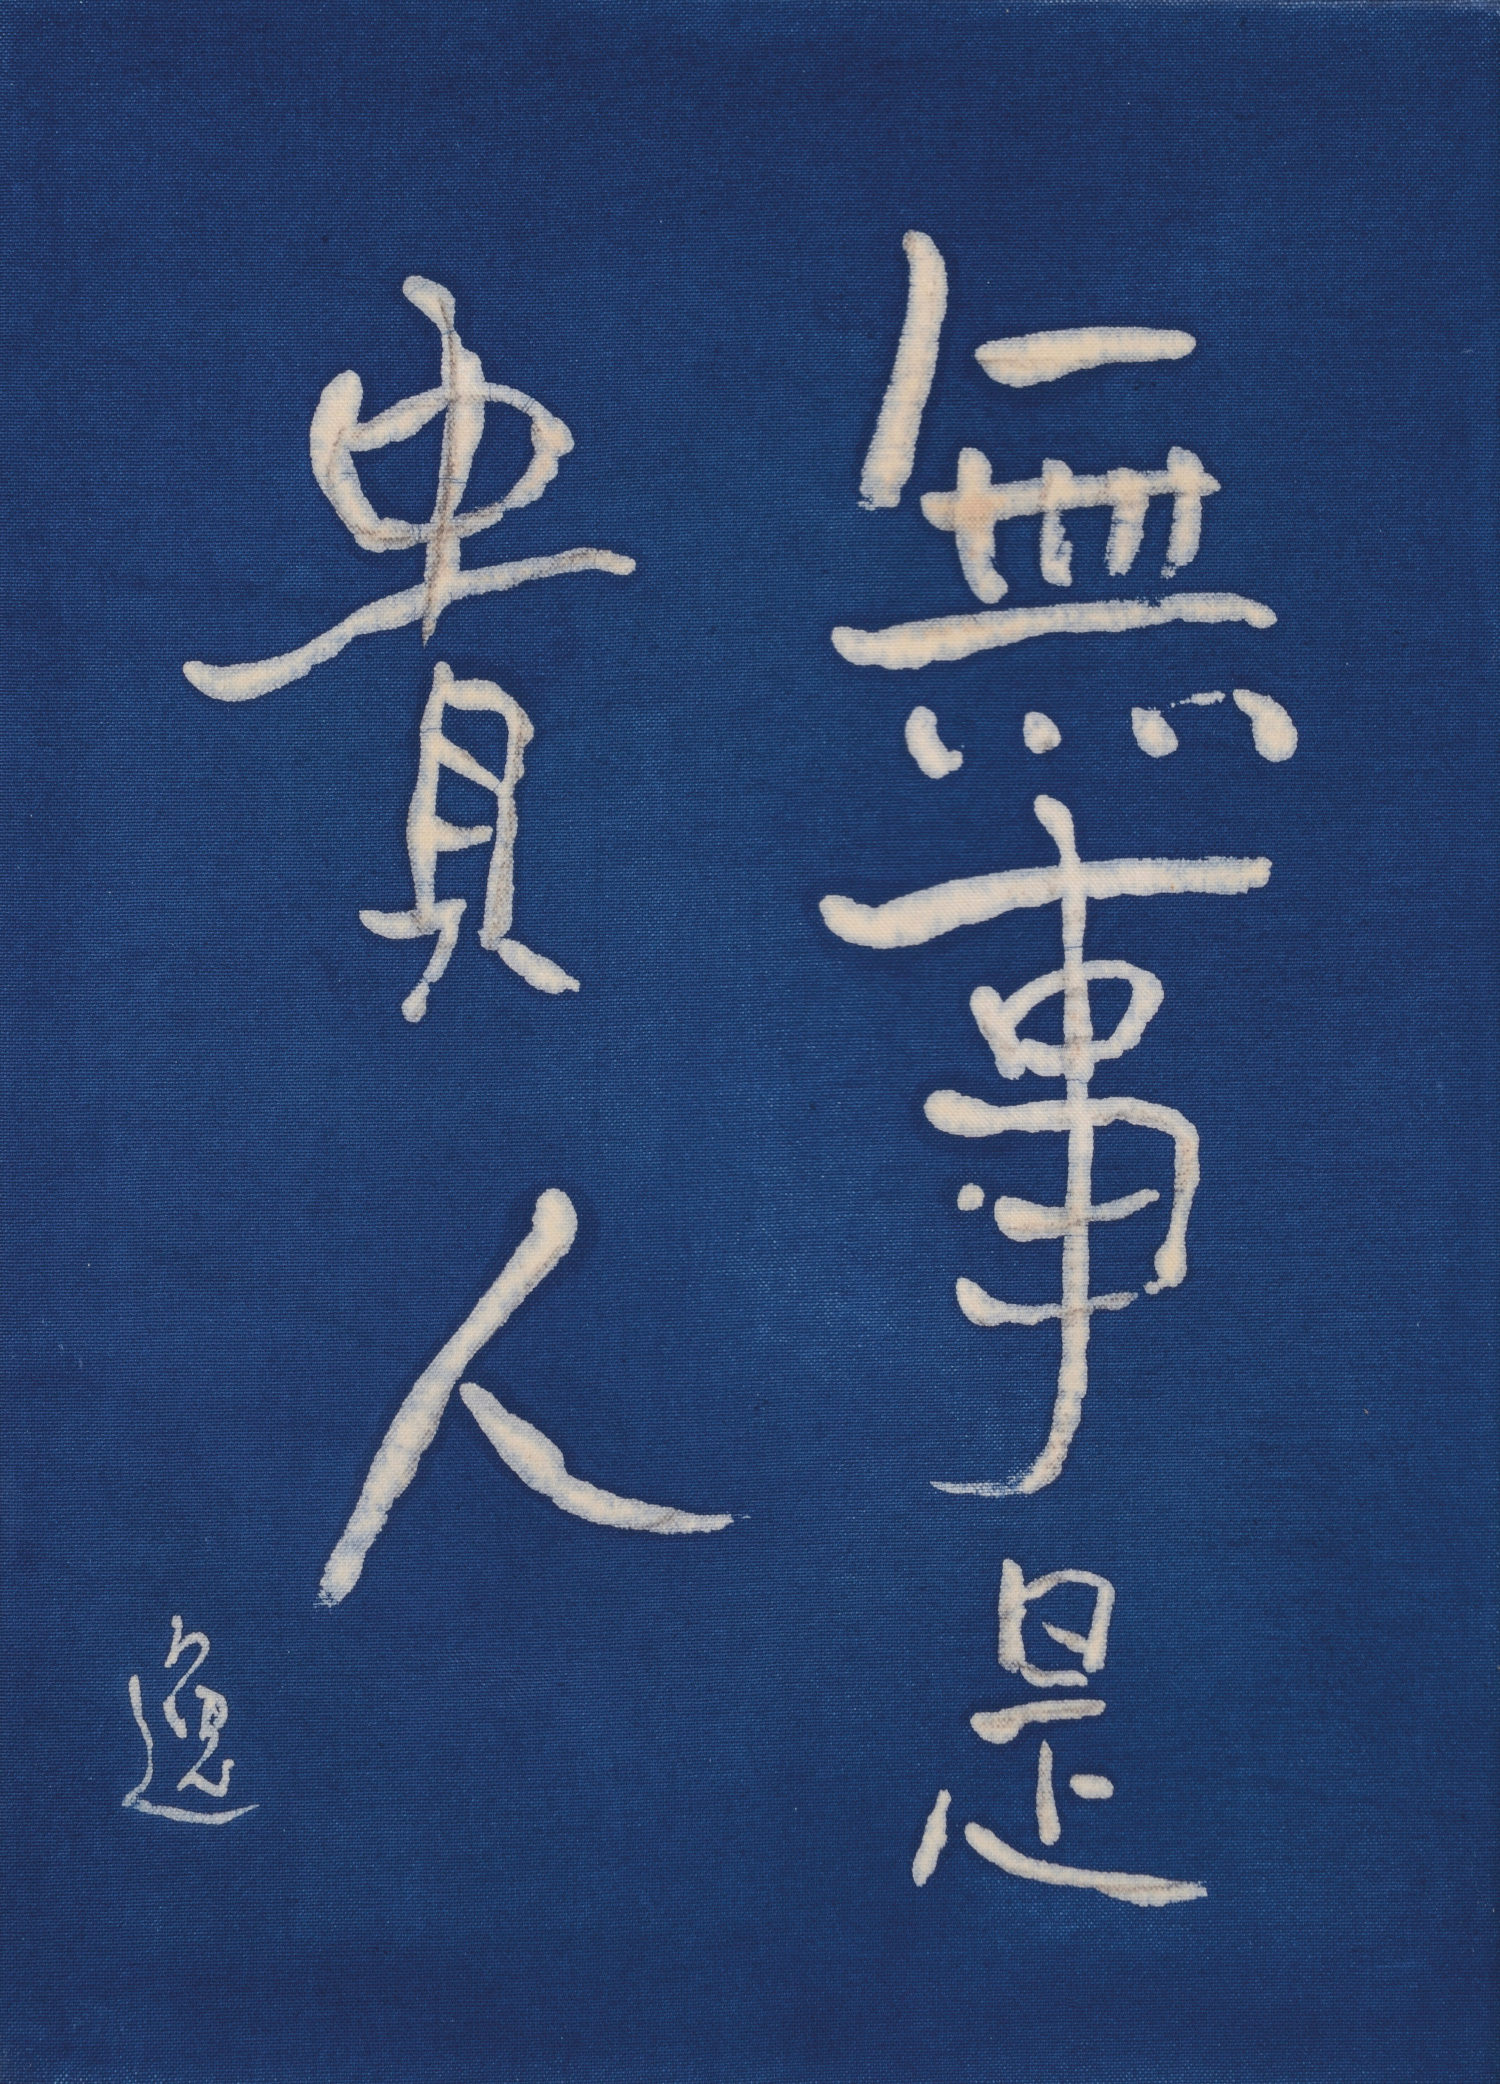 無事是
貴人
逸